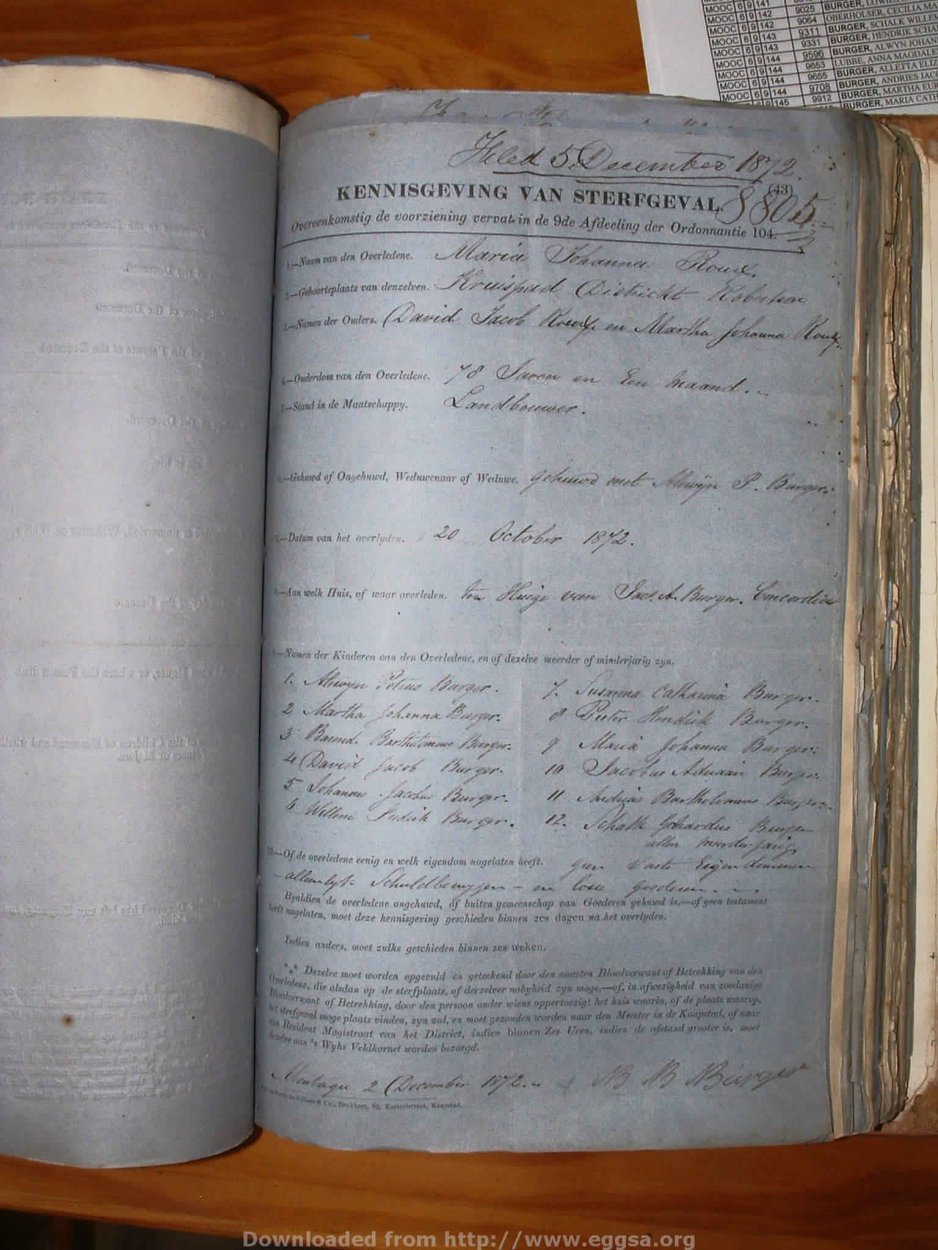 MOOC 6 9 141
MOOC 6 9 142 9025 BURGER,
MOOC 6 9 142 9064 OBERHOLSER, CECILIA MA
MOOC 6 9 143 9311 BURGER, SCHALK WILLEM
MOOC 6 9 143 9331 BURGER, HENDRIK SCHA
MOOC 6 9 144 9596 BURGER, ALWYN JOHAN
MOOC 6 9 144 9653 LUBBE, ANNA MAGDALE
MOOC 6 9 144 9655 BURGER, ALETTA ELIZ
MOOC 6 9 144 9708 BURGER, ANDRIES JAC
145 9912 BURGER, MARTHA EU
BURGER, MARIA CATH
Filed 5 December 1872.
(43)
KENNISGEVING VAN STERFGEVAL 8805
Overeenkomstig de voorziening vervat in de 9de Afdeeling der Ordonnantie 104.
1.—Naam van den Overledene. Maria Johanna Roux.
2.—Geboorteplaats van denzelven. Kruispad District Robertson
3.—Namen der Ouders. David Jacob Roux en Martha Johanna Roux.
4.—Ouderdom van den Overledene. 78 Jaren en Een maand.
5.—Stand in de Maatschappy. Landbouwer.
6.—Gehuwd of Ongehuwd, Weduwenaar of Weduwe. Gehuwd met Alwyn P. Burger.
7.—Datum van het overlyden. 20 October 1872.
8.—Aan welk Huis, of waar overleden. ten Huize van Jac A. Burger. Concordia
9.—Namen der Kinderen van den Overledene, en of dezelve meerder of minderjarig zyn.
1. Alwyn Petrus Burger. 7. Susanna Catharina Burger.
2 Martha Johanna Burger. 8 Pieter Hendrik Burger.
3 Barend Bartholomeus Burger. 9 Maria Johanna Burger.
4 David Jacob Burger. 10 Jacobus Adriaan Burger.
5 Johannes Jacobus Burger. 11 Andries Bartholomeus Burger.
6 Willem Burger. 12. Schalk Gerhardus Burger
allen meerderjarig
10.—Of de overledene eenig en welk eigendom nagelaten heeft. geen Vaste Eigendommen
allenlyk Schuldbewyzen - en lose goederen.
Byaldien de overledene ongehuwd, óf buiten gemeenschap van Goederen gehuwd is,—of geen testament
heeft nagelaten, moet deze kennisgeving geschieden binnen zes dagen na het overlyden.
Indien anders, moet zulks geschieden binnen zes weken.
*** Dezelve moet worden opgevuld en geteekend door den naasten Bloedverwant of Betrekking van den
Overledene, die alsdan op de sterfplaats, of derzelver nabyheid zyn moge,—of, in afwezigheid van zoodanige
Bloedverwant of Betrekking, door den persoon onder wiens oppertoezigt het huis waarin, of de plaats waarop,
het sterfgeval moge plaats vinden, zyn zal, en moet gezonden worden naar den Meester in de Kaapstad, of naar
den Resident Magistraat van het District, indien binnen Zes Uren, indien de afstand grooter is, moet
dezelve aan 's Wyks Veldkornet worden bezorgd.
Montagu 2 December 1872. B B Burger
Drukkers, Kasteelstraat, Kaapstad.
Downloaded from http://www.eggsa.org